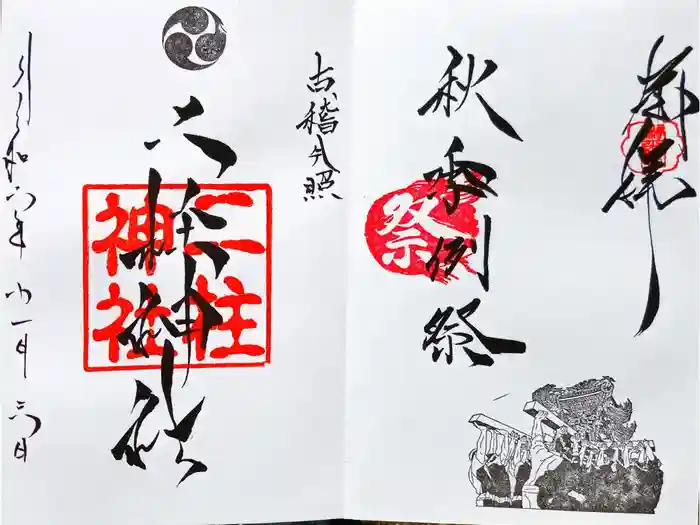 奉拝
秋季例祭
祭
古稽今照
二柱神社
二柱
神社
令和六年十一月三日